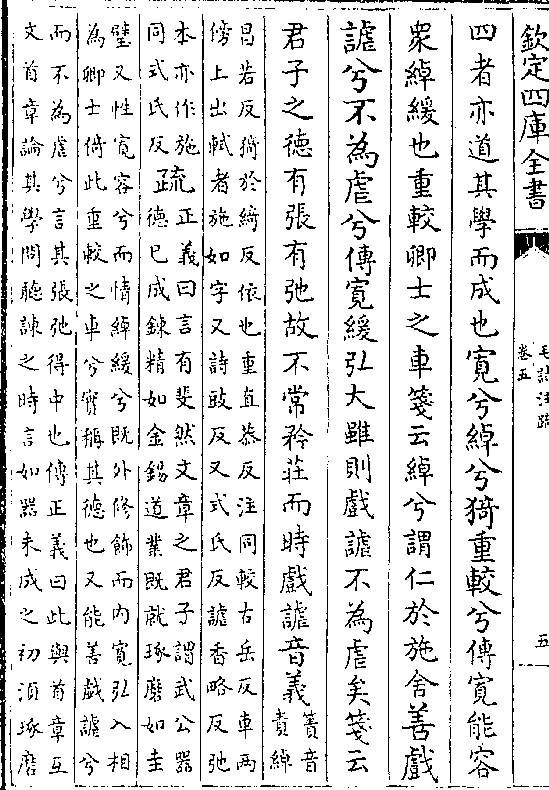 欽定四庫全書
毛詩注疏
卷五
五
四者亦道其學而成也寛兮綽兮猗重較兮傳寛能容
衆綽緩也重較卿士之車箋云綽兮謂仁於施舍善戲
謔兮不為虐兮傳寛緩弘大雖則戲謔不為虐矣箋云
君子之德有張有弛故不常矜莊而時戲謔音義
簀音
責綽
昌若反猗於綺反依也重直恭反注同較古岳反車兩
傍上出軾者施如字又詩豉反又式氏反謔香略反弛
本亦作施
同式氏反
疏
正義曰言有斐然文章之君子謂武公器
德已成鍊精如金錫道業既就琢磨如圭
璧又性寛容兮而情綽緩兮既外修飾而内寛弘入相
為卿士倚此重較之車兮實稱其德也又能善戲謔兮
而不為虐兮言其張弛得中也傳正義曰此與首章互
文首章論其學問聽諫之時言如器未成之初須琢磨